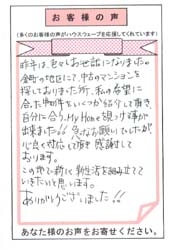 お客様の声
(多くのお客様の声がハウスウェーブを応援してくれています)
昨年は、色々とお世話になりました。
金町の地区にて、中古のマンションを
探しておりました所、私の希望に
合った物件をいくつか紹介して頂き、
自分に合うMy Homeを見つける事が
出来ました!! 急なお願いでしたが
心良く対応して頂き感謝して
おります。
この地で新に新生活を始めさせて
いきたいと思います。
ありがとうございました!!
あなた様のお声をお寄せください。